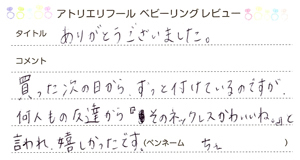 アトリエリフール ベビーリングレビュー
タイトル ありがとうございました。
コメント
買った次の日から、ずっと付けているのですが、
何人もの友達から『そのネックレスかわいいね。』と
言われ、嬉しかったです。(ペンネーム ちえ